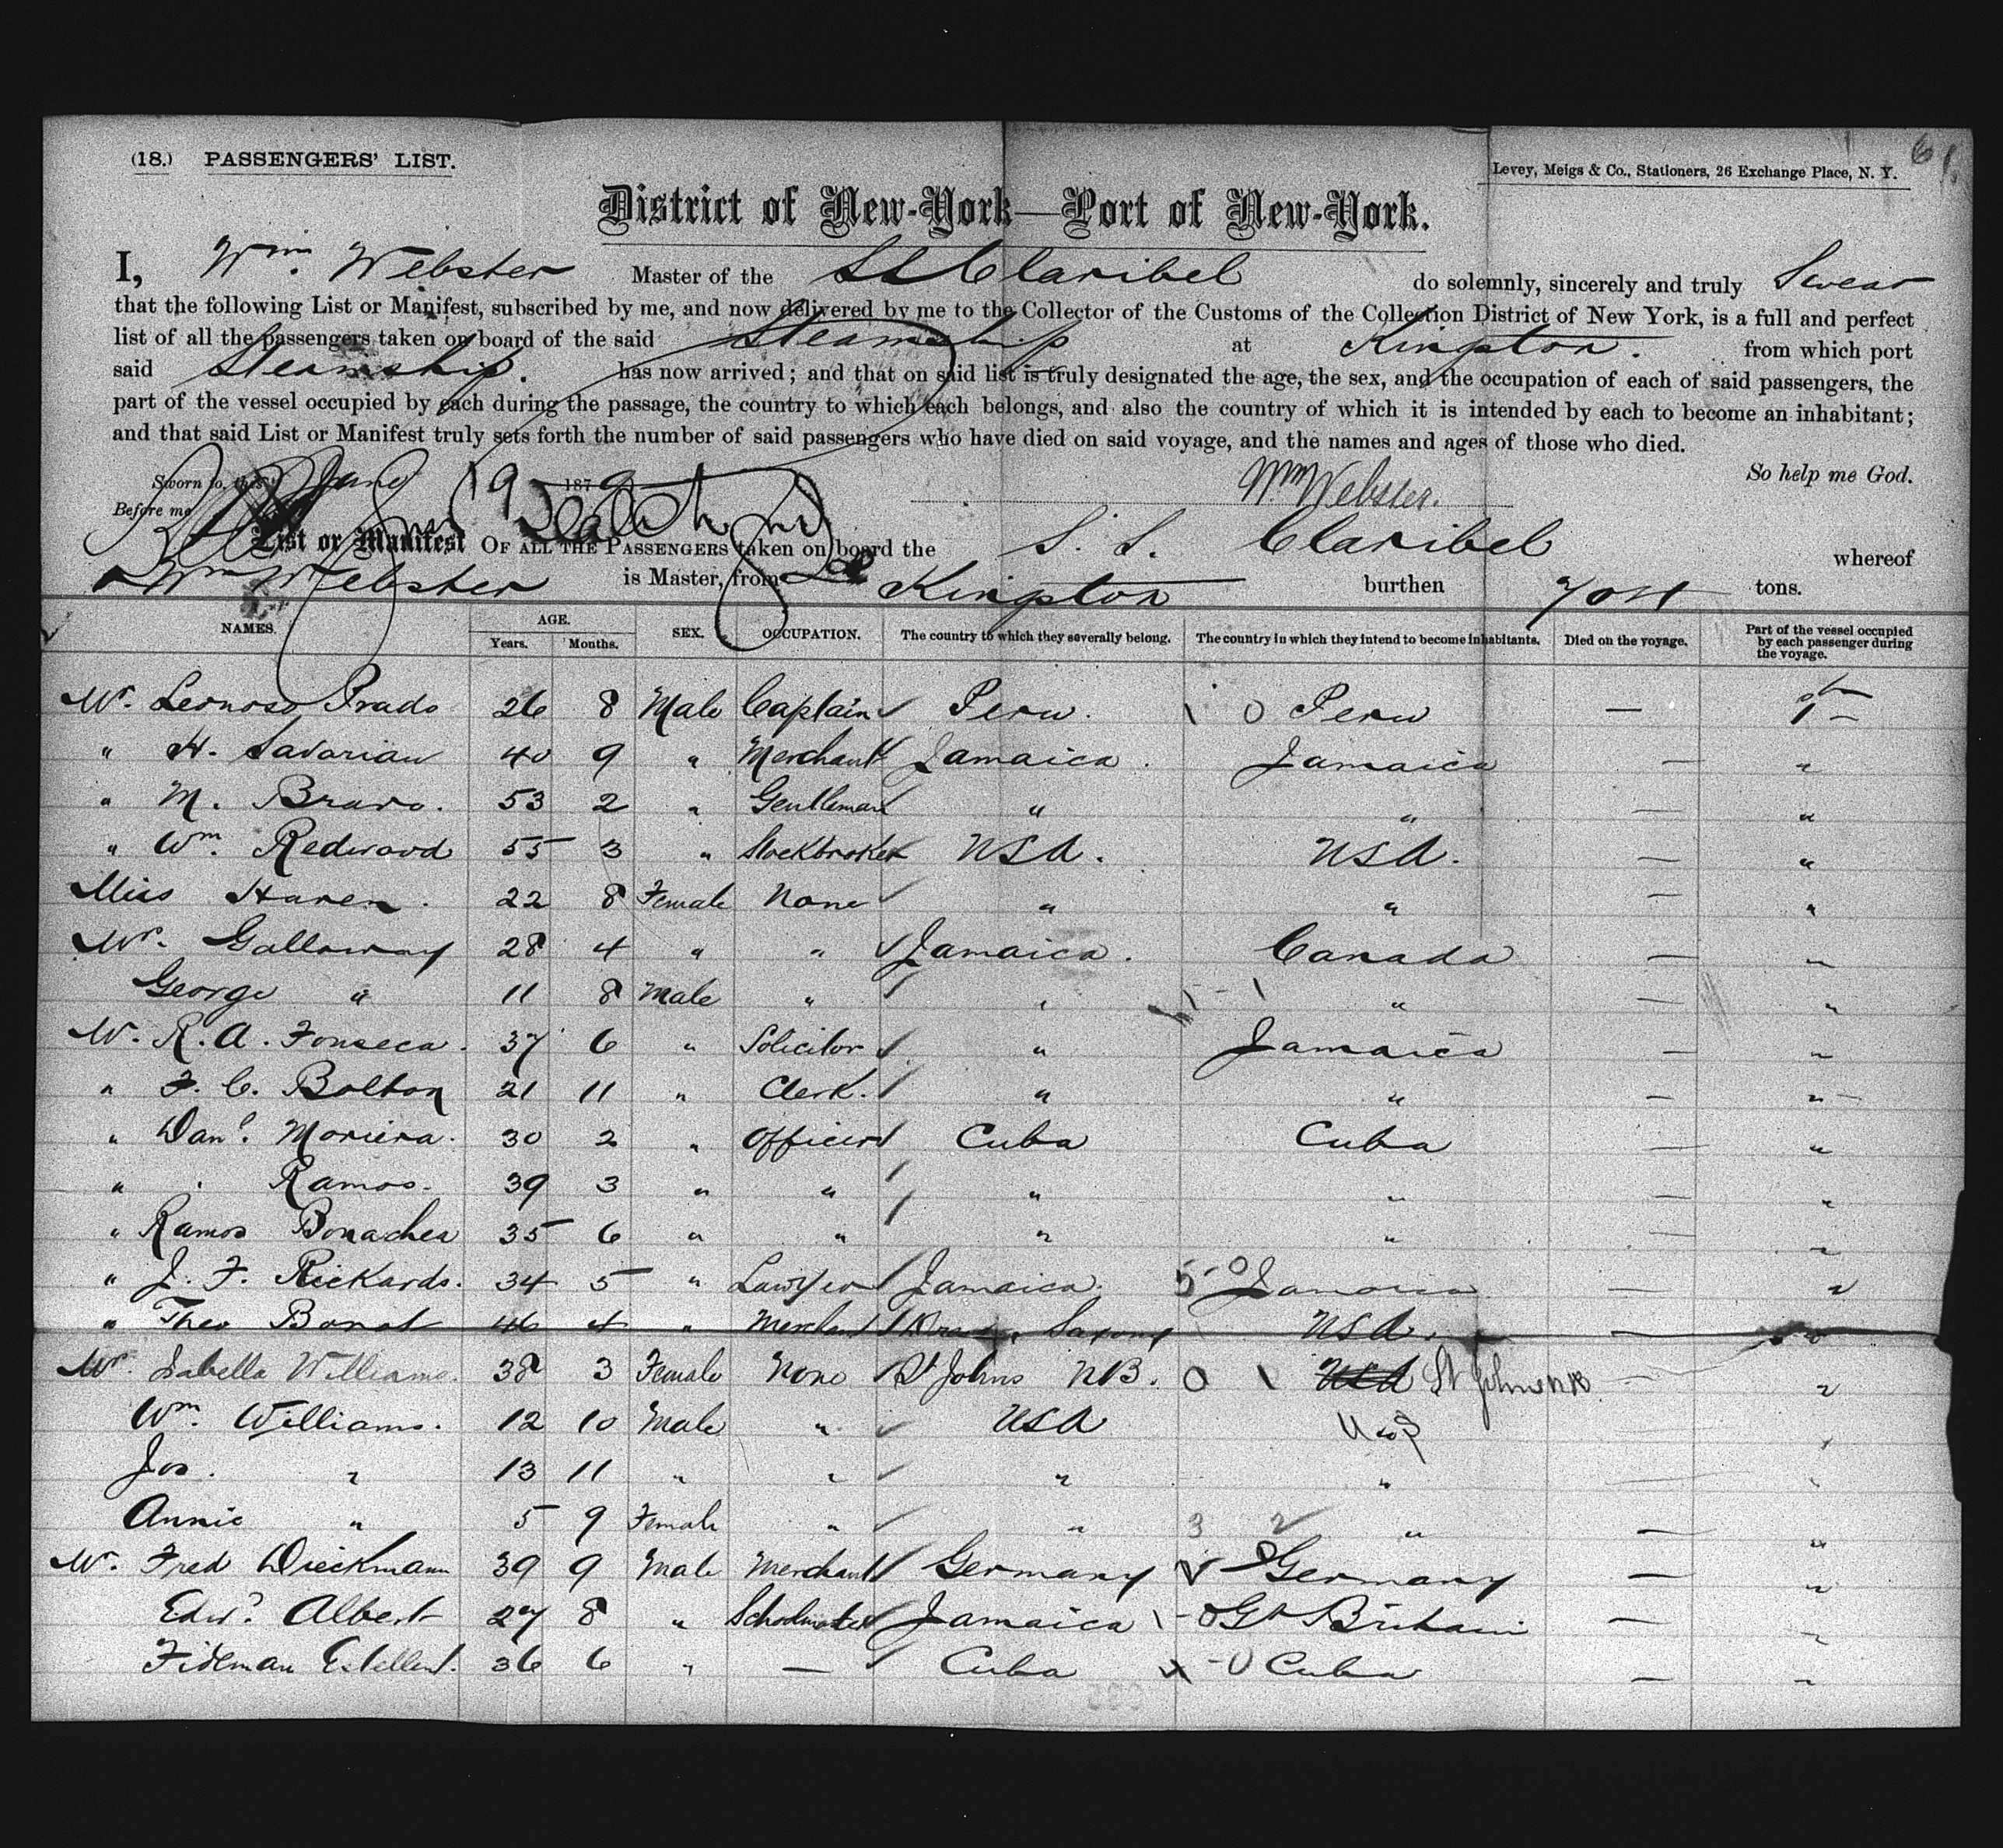 (18.) PASSENGERS' LIST.
Levey, Meigs & Co., Stationers, 26 Exchange Place, N. Y.
61.
District of New-York—Port of New-York.
I, Wm. Webster Master of the SS Claribel do solemnly, sincerely and truly Swear
that the following List or Manifest, subscribed by me, and now delivered by me to the Collector of the Customs of the Collection District of New York, is a full and perfect
list of all the passengers taken on board of the said Steamship at Kingston. from which port
said Steamship. has now arrived; and that on said list is truly designated the age, the sex, and the occupation of each of said passengers, the
part of the vessel occupied by each during the passage, the country to which each belongs, and also the country of which it is intended by each to become an inhabitant;
and that said List or Manifest truly sets forth the number of said passengers who have died on said voyage, and the names and ages of those who died.
So help me God.
Sworn to, this June 19 1879
Wm Webster.
Before me
List or Manifest OF ALL THE PASSENGERS taken on board the S. S. Claribel whereof
Wm Webster is Master, from Kingston burthen tons.
NAMES. AGE. Years. Months. SEX. OCCUPATION. The country to which they severally belong. The country in which they intend to become inhabitants. Died on the voyage. Part of the vessel occupied by each passenger during the voyage.
Mr. Leonoso Prado 26 8 Male Captain Peru. Peru — 1st
" H. Savarian 40 9 " Merchant Jamaica. Jamaica — "
" M. Bravo. 53 2 " Gentleman " " — "
" Wm. Redwood 55 3 " Stockbroker USA. USA. — "
Miss Haren. 22 8 Female None " " — "
Mrs. Galloway 28 4 " " Jamaica. Canada — "
George " 11 8 Male " " " — "
Mr. R. A. Fonseca. 37 6 " Solicitor " Jamaica — "
" F. C. Bolton 21 11 " Clerk. " " — "
" Danl. Moriera. 30 2 " Officer Cuba Cuba — "
" Ramos. 39 3 " " " " — "
" Ramos Bonachea 35 6 " " " " — "
" J. F. Rickards. 34 5 " Lawyer Jamaica. Jamaica — "
" Theo Bonat 46 4 " Merchant Saxony USA. — "
Mrs. Isabella Williams. 38 3 Female None St Johns NB. USA St Johns NB — "
Wm. Williams. 12 10 Male " USA U S — "
Jos. " 13 11 " " " " — "
Annie " 5 9 Female " " " — "
Mr. Fred Dieckmann 39 9 Male Merchant Germany Germany — "
Edwd. Albert 27 8 " Schoolmaster Jamaica Gt Britain — "
Fideman Estellent. 36 6 " — Cuba Cuba — "